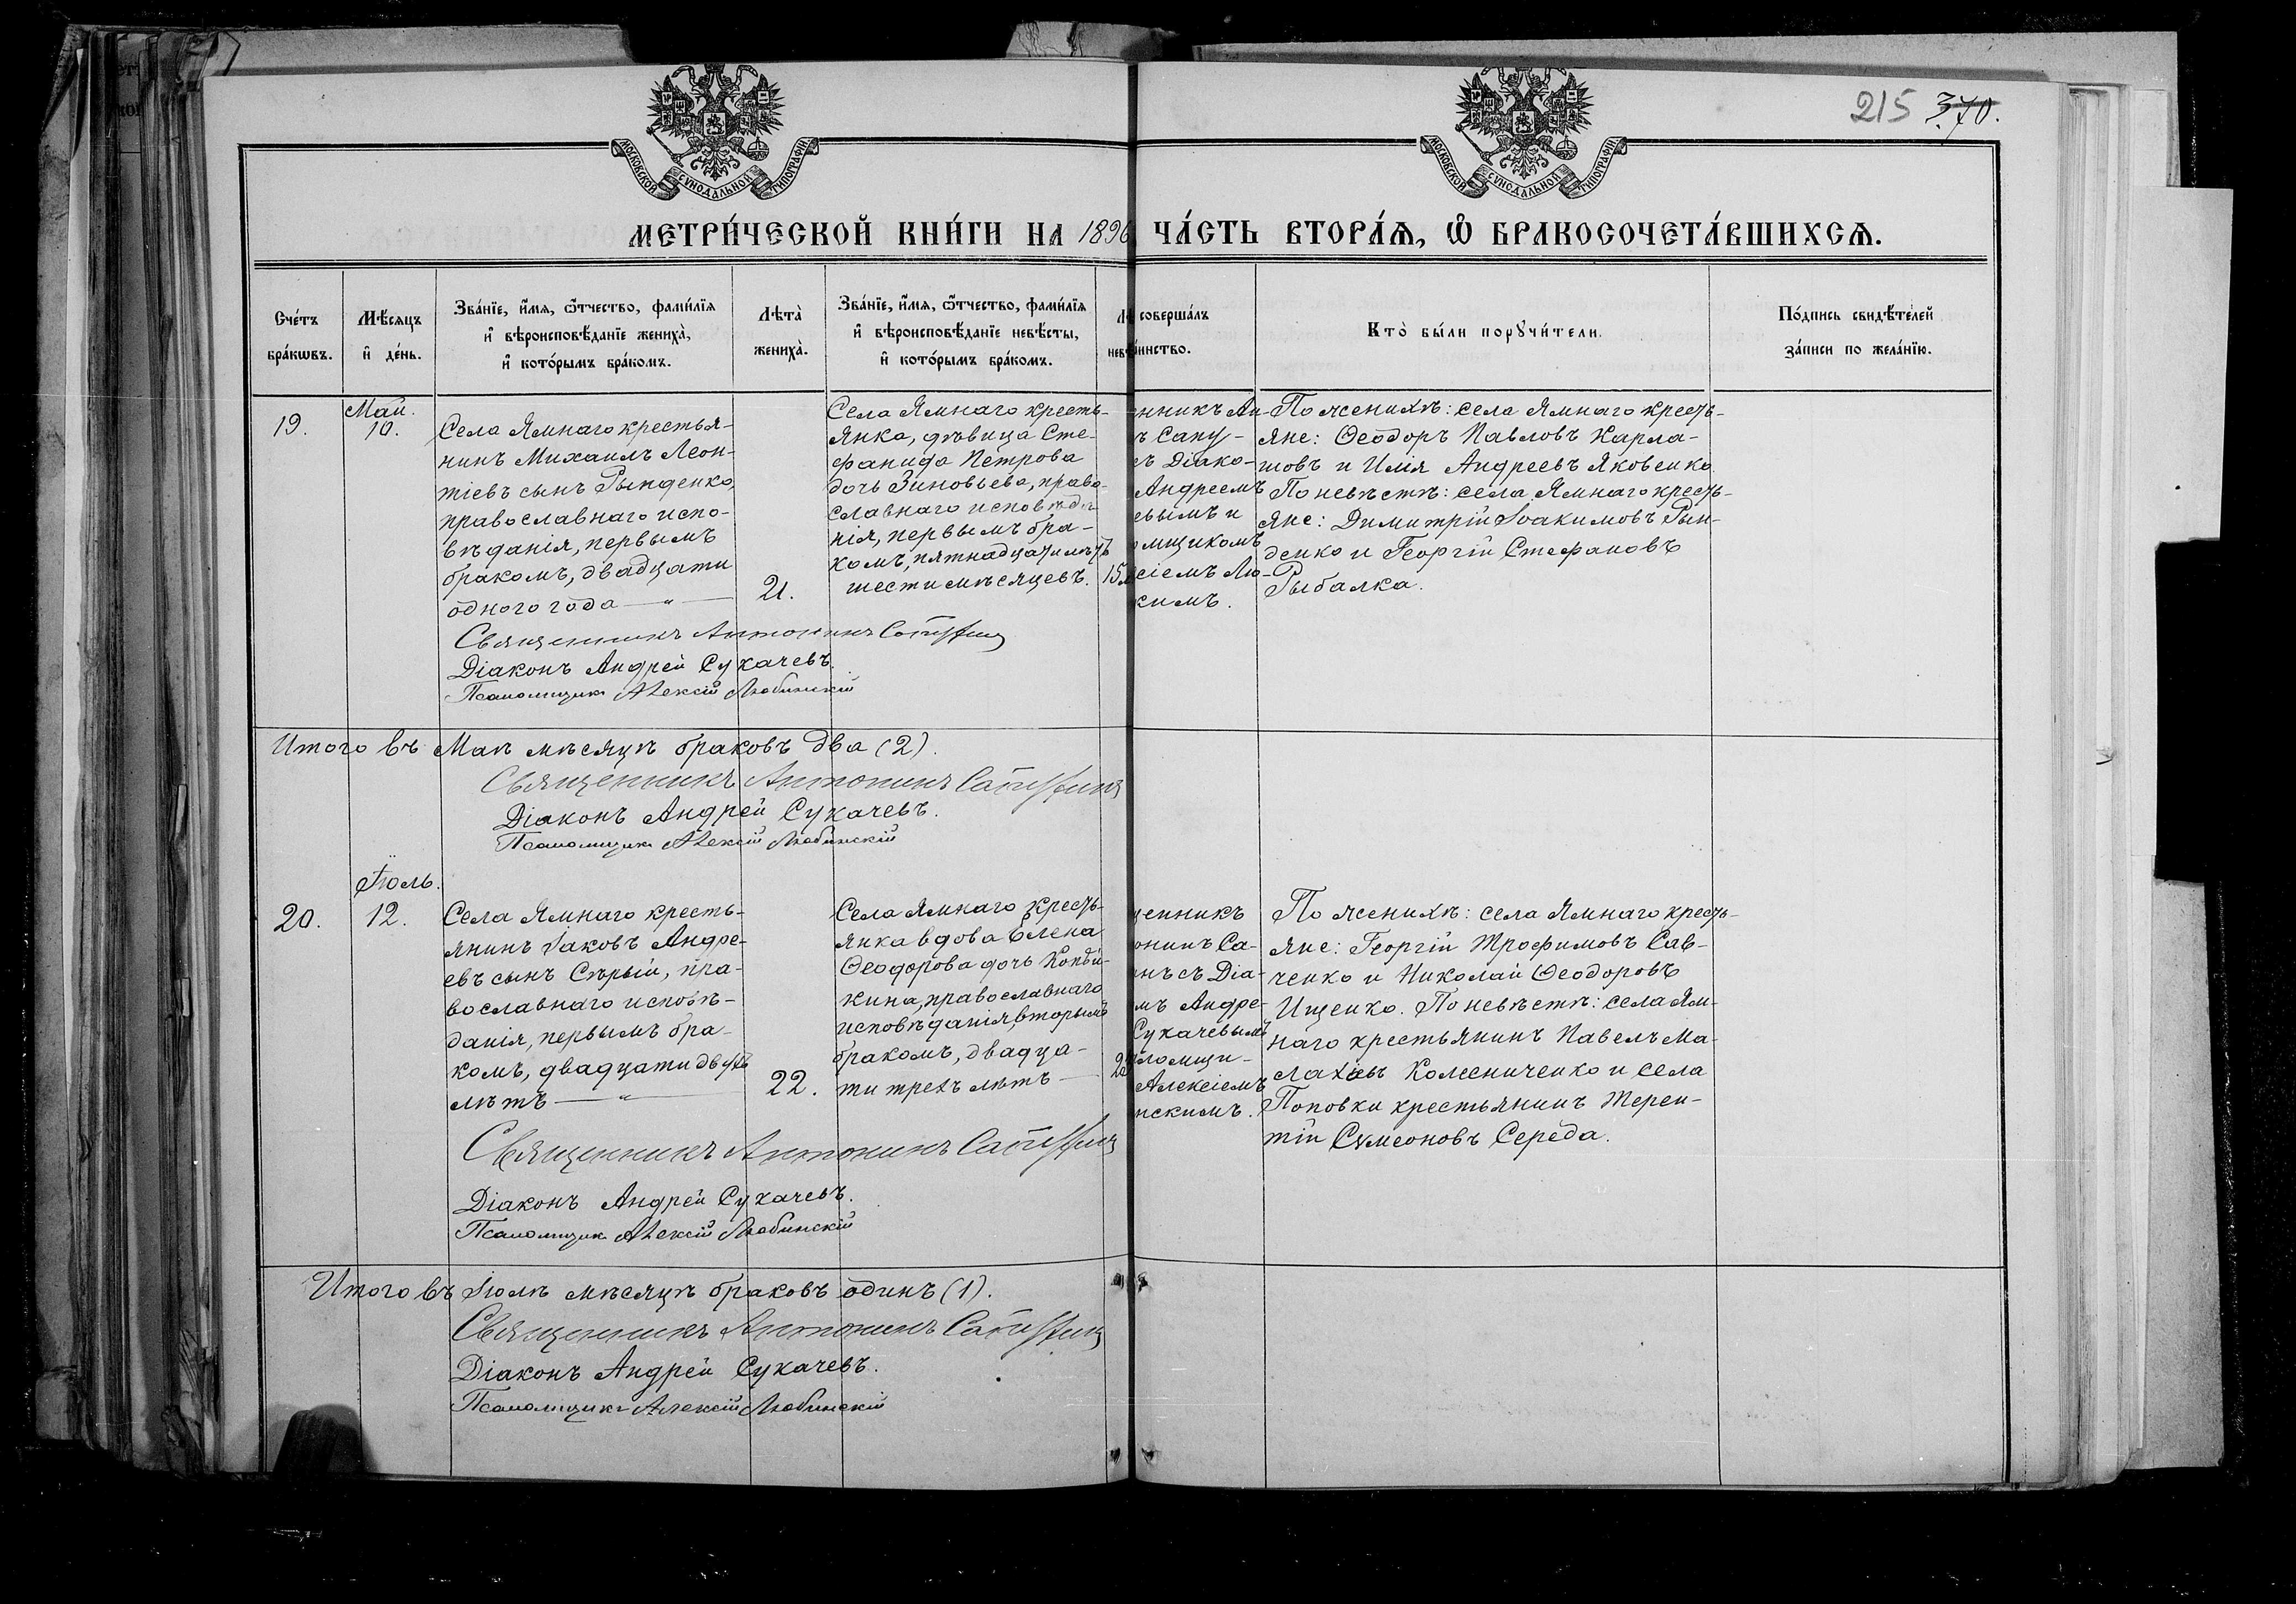 215 370.
МОСКОВСКОЙ СѴНОДАЛЬНОЙ ТИПОГРАФІИ
МОСКОВСКОЙ СѴНОДАЛЬНОЙ ТИПОГРАФІИ
МЕТРИ́ЧЕСКОЙ КНИ́ГИ НА 1896 ЧА́СТЬ ВТОРА́Ѧ, Ѽ БРАКОСОЧЕТА́ВШИХСѦ.
Сче́тъ
бра́кѡвъ.
Мѣ́сяцъ
и҆ де́нь.
Зва́нїе, и҆́мя, ѻ҆́тчество, фами́лїя
и҆ вѣроисповѣ́данїе жениха̀,
и҆ кото́рымъ бра́комъ.
Лѣта̀
жениха̀.
Зва́нїе, и҆́мя, ѻ҆́тчество, фами́лїя
и҆ вѣроисповѣ́данїе невѣ́сты,
и҆ кото́рымъ бра́комъ.
Лѣ
невѣ
соверша́лъ
инство.
Кто̀ бы́ли порꙋчи́тели.
По́дпись свидѣ́телей
за́писи по жела́нїю.
19.
Май.
10.
Села Ямнаго крестья-
нинъ Михаилъ Леон-
тіевъ сынъ Рынденко,
православнаго испо-
вѣданія, первымъ
бракомъ, двадцати
одного года — „ —
21.
Села Ямнаго кресть-
янка, дѣвица Сте-
фанида Петрова
дочь Зиновьева, право-
славнаго исповѣда-
нія, первымъ бра-
комъ, пятнадцати лѣтъ
шести мѣсяцевъ.
15
нникъ Ан-
ъ Сапу-
съ Діако-
Андреемъ
евымъ и
омщикомъ
сіемъ Лю-
кимъ.
По женихѣ: села Ямнаго кресть-
яне: Ѳеодоръ Павловъ Карла-
шовъ и Илія Андреевъ Яковенко.
По невѣстѣ: села Ямнаго кресть-
яне: Димитрій Іоакимовъ Рын-
денко и Георгій Стефановъ
Рыбалка.
Священникъ Антонинъ
Діаконъ Андрей Сукачевъ.
Псаломщикъ Алексій Любинскій
Итого въ Маѣ мѣсяцѣ браковъ два (2).
Священникъ Антонинъ
Діаконъ Андрей Сукачевъ.
Псаломщикъ Алексій Любинскій
20.
Іюль.
12.
Села Ямнаго кресть-
янинъ Іаковъ Андре-
евъ сынъ Сѣрый, пра-
вославнаго исповѣ-
данія, первымъ бра-
комъ, двадцати двухъ
лѣтъ — „ —
22.
Села Ямнаго кресть-
янка вдова Елена
Ѳеодорова дочь Копѣй-
кина, православнаго
исповѣданія, вторымъ
бракомъ, двадца-
ти трехъ лѣтъ —
2
щенникъ
онинъ Са-
нъ съ Діа-
мъ Андре-
Сукачевымъ
ломщи-
Алексіемъ
нскимъ.
По женихѣ: села Ямнаго кресть-
яне: Георгій Трофимовъ Сав-
ченко и Николай Ѳеодоровъ
Ищенко. По невѣстѣ: села Ям-
наго крестьянинъ Павелъ Ма-
лахіевъ Колесниченко и села
Поповки крестьянинъ Терен-
тій Сѵмеоновъ Середа.
Священникъ Антонинъ
Діаконъ Андрей Сукачевъ.
Псаломщикъ Алексій Любинскій
Итого въ Іюлѣ мѣсяцѣ браковъ одинъ (1).
Священникъ Антонинъ
Діаконъ Андрей Сукачевъ.
Псаломщикъ Алексій Любинскій